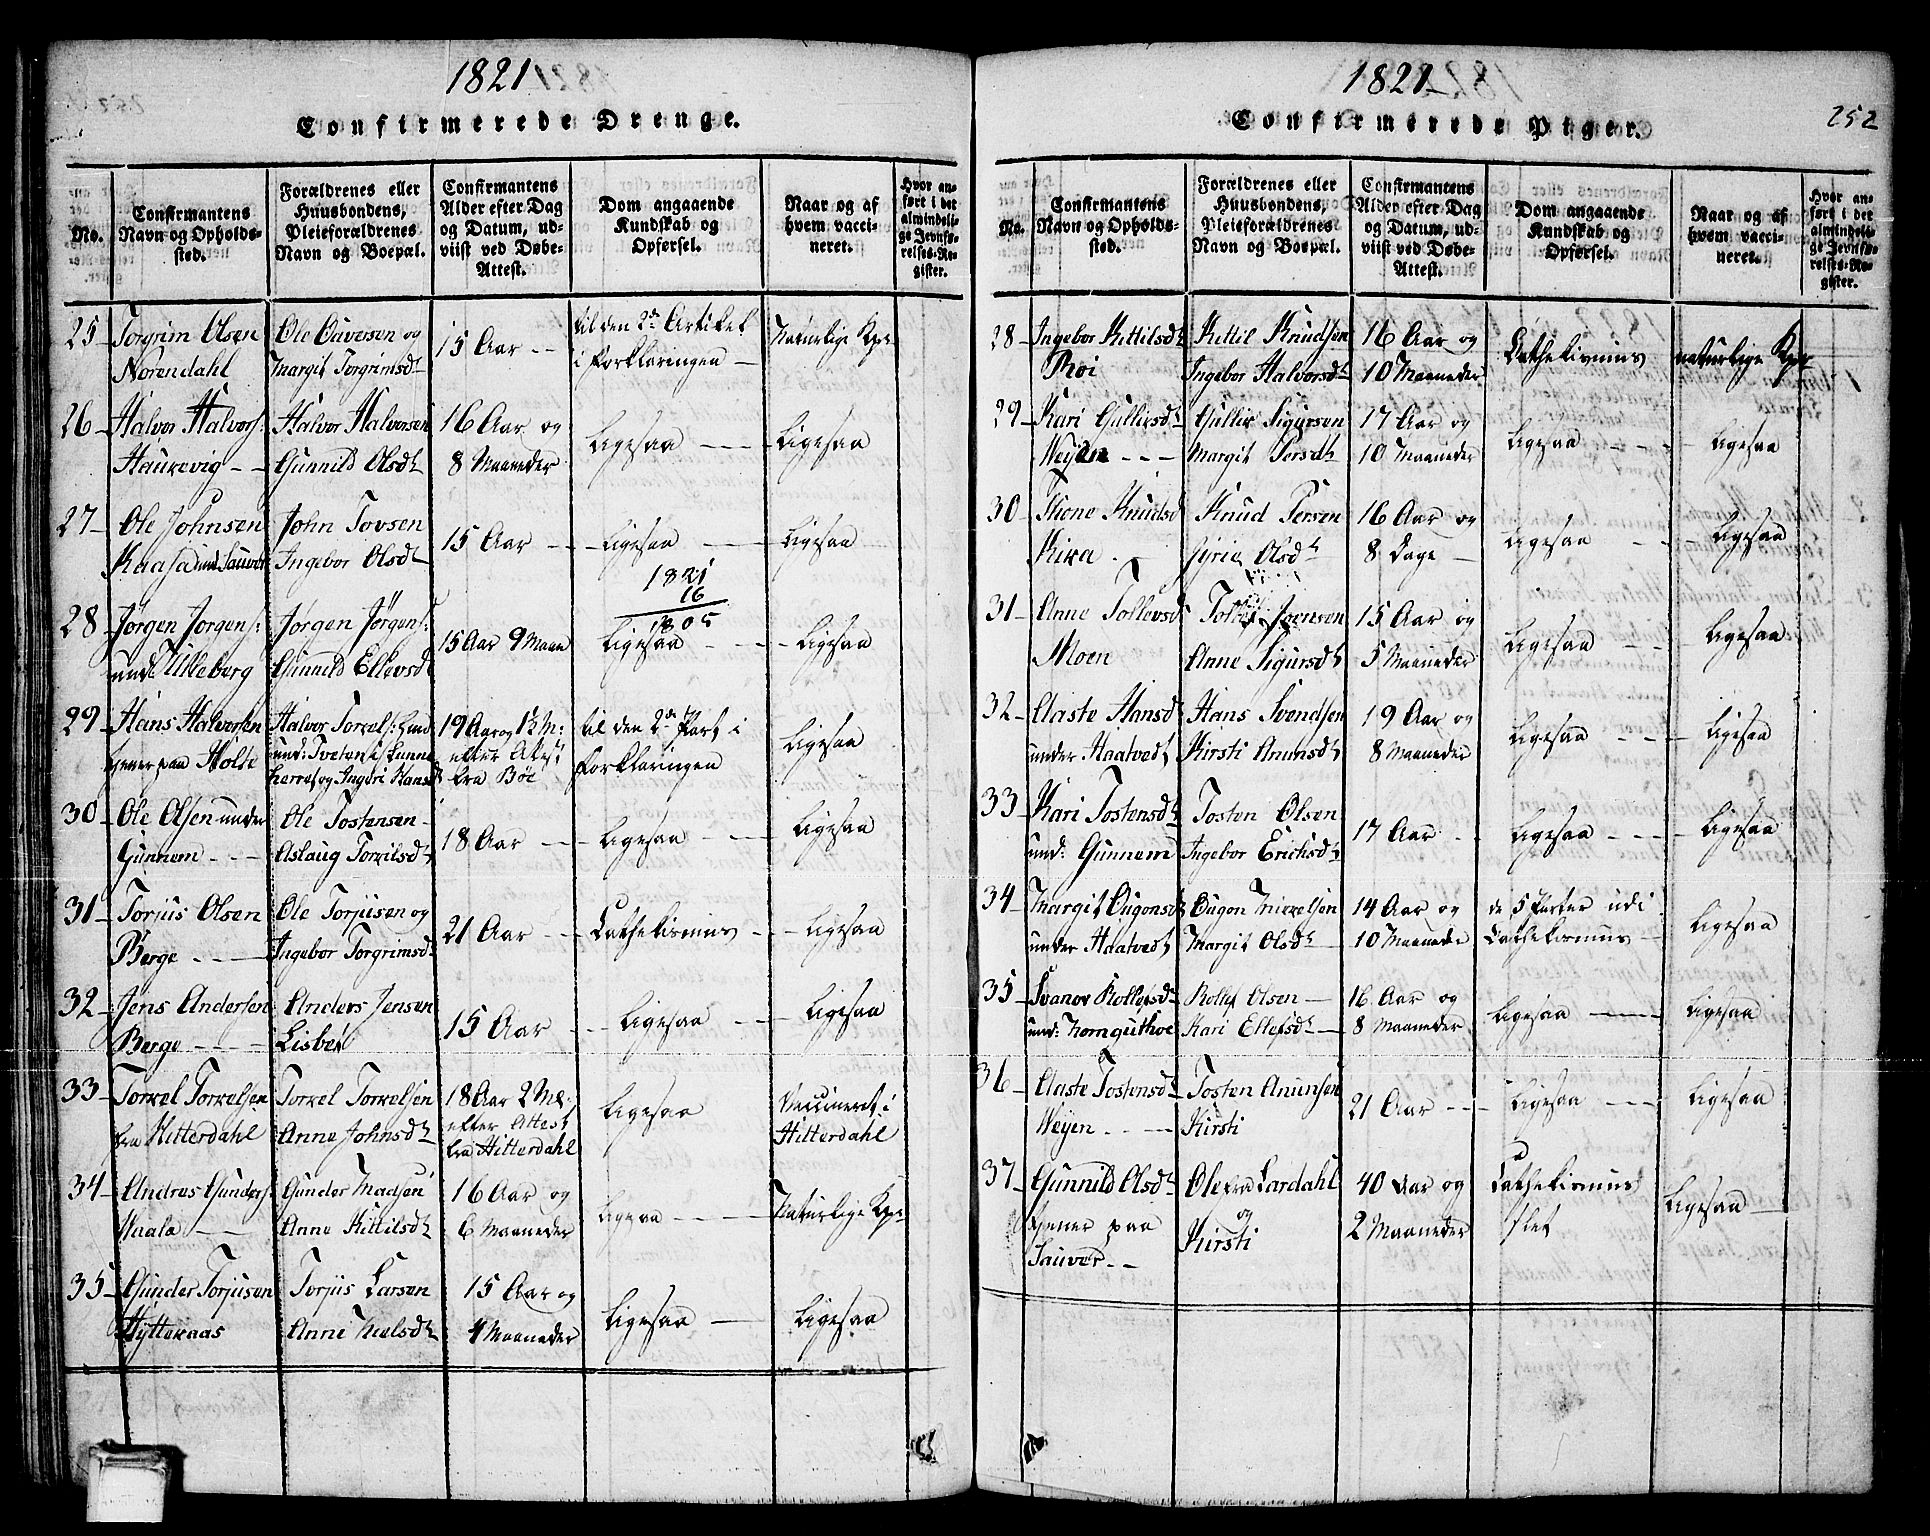 1821
Confirmerede Drenge.
No.
Confirmantens
Navn og Opholds-
sted.
Forældrenes eller
Huusbondens,
Pleieforældrenes
Navn og Boepæl.
Confirmantens
Alder efter Dag
og Datum, ud-
viist ved Døbe-
Attest.
Dom angaaende
Kundskab og
Opførsel.
Naar og af
hvem vacci-
neret.
Hvor an-
ført i det
almindeli-
ge Jevnfø-
relses-Re-
gister.
25 Torgrim Olsen
Norendahl
Ole Oüversen og
Margit Torgrimsdt
15 Aar
til den 2den Artikel
i Forklaringen
Naturlige Kpr
26 Halvor Halvors:
Haukevig
Halvor Halvorsen
Gunnild Olsdt
16 Aar og
8 Maaneder
Ligesaa
Ligesaa
27 Ole Johnsen
Kaasa und Sauver
John Tovsen
Ingebor Olsdt
15 Aar
Ligesaa
Ligesaa
1821
16
1805
28 Jørgen Jorgens:
und: Ulleberg
Jørgen Jørgens:
Gunnild Ellevsdt
15 Aar 9 Maan
Ligesaa
Ligesaa
29 Hans Halvorsen
tjener paa Holte
Halvor Torkels:
und: Tveten i
herred og Ingeri Hansd
19 Aar og
efter Attest
fra Bøe
til den 2den Part i
Forklaringen
Ligesaa
30 Ole Olsen under
Gunnem
Ole Tostensen
Aslaug Torkilsdt
18 Aar
Ligesaa
Ligesaa
31 Torjus Olsen
Berge
Ole Torjusen og
Ingebor Torgrimsd
21 Aar
Cathekismus
Ligesaa
32 Jens Andersen
Berge
Anders Jensen
Lisbet
15 Aar
Ligesaa
Ligesaa
33 Torkel Torkelsen
fra Hitterdahl
Torkel Torkelsen
Anne Johnsdt
18 Aar 2 M:
efter Attest
fra Hitterdahl
Ligesaa
Vaccineret i
Hitterdahl
34 Andres Gunders:
Vaala
Gunder Madsen
Anne Kittilsdt
16 Aar og
6 Maaneder
Ligesaa
Naturlige Kpr
35 Gunder Torjusen
Hytteraas
Torjus Larsen
Anne Nielsdt
15 Aar og
4 Maaneder
Ligesaa
Ligesaa
1821
Confirmerede Piger.
252
No.
Confirmantens
Navn og Opholds-
sted.
Forældrenes eller
Huusbondens,
Pleieforældrenes
Navn og Boepæl.
Confirmantens
Alder efter Dag
og Datum, ud-
viist ved Døbe-
Attest.
Dom angaaende
Kundskab og
Opførsel.
Naar og af
hvem vacci-
neret.
Hvor an-
ført i det
almindeli-
ge Jevnfø-
relses-Re-
gister.
28 Ingebor Kittilsdt
Roi
Kittil Knudsen
Ingebor Halvorsdt
16 Aar og
10 Maaneder
Cathekismus
naturlige Kpr
29 Kari Gullicsdt
Weyen
Gullic Sigursen
Margit Persdt
17 Aar og
10 Maaneder
Ligesaa
Ligesaa
30 Thone Knudsd
Kiva
Knud Persen
Jyrie Olsdt
16 Aar og
8 Dage
Ligesaa
Ligesaa
31 Anne Tollevsd
Moen
Tollev Joensen
Anne Sigursdt
15 Aar og
5 Maaneder
Ligesaa
Ligesaa
32 Aaste Hansdt
under Haatvedt
Hans Svendsen
Kirsti Anunsdt
19 Aar og
8 Maaneder
Ligesaa
Ligesaa
33 Kari Tostensdt
und: Gunnem
Tosten Olsen
Ingebor Erichsdt
17 Aar
Ligesaa
Ligesaa
34 Margit Ougonsdt
under Haatvedt
Ougon Mikkelsen
Margit Olsdt
14 Aar og
10 Maaneder
de 5 Parter udi
Cathekismus
Ligesaa
35 Svanov Rollefsdt
und: Homguthvet
Rollef Olsen
Kari Ellefsdt
16 Aar og
8 Maaneder
Ligesaa
Ligesaa
36 Aaste Tostensdt
Weyen
Tosten Anunsen
Kirsti
21 Aar
Ligesaa
Ligesaa
37 Gunnild Olsdt
tjener paa
Sauver
Ole fra Lardahl
og
Kirsti
40 Aar og
2 Maaneder
Cathekismus
slet
Ligesaa